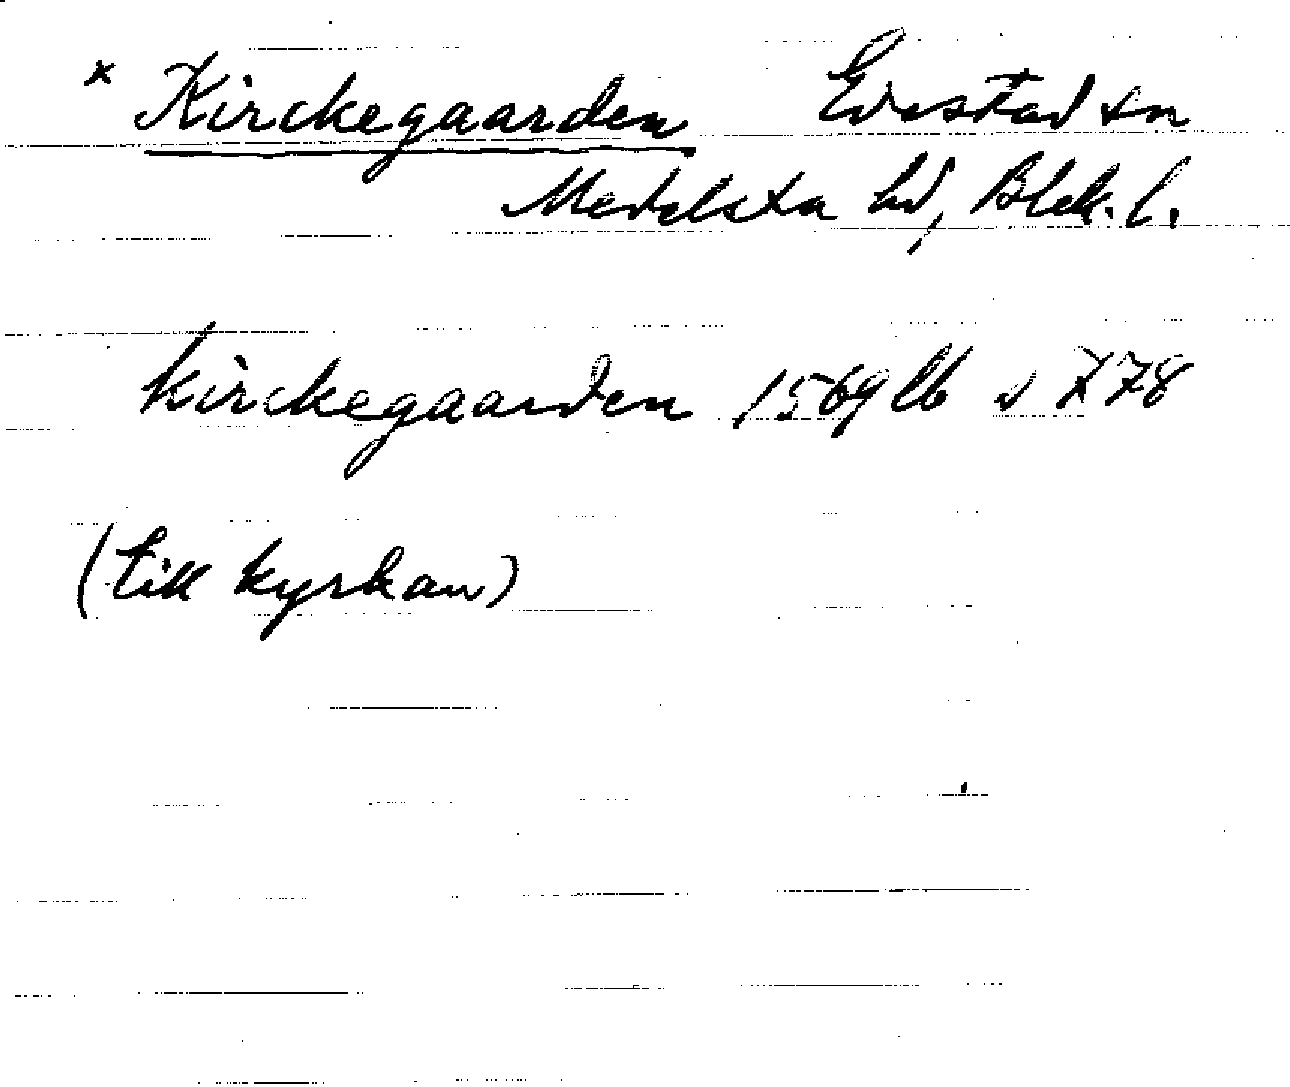 × Kirckegaarden Edestad sn
Medelsta hd, Blek. l.
kirckegaarden 1569 lb s 778
(till kyrkan)